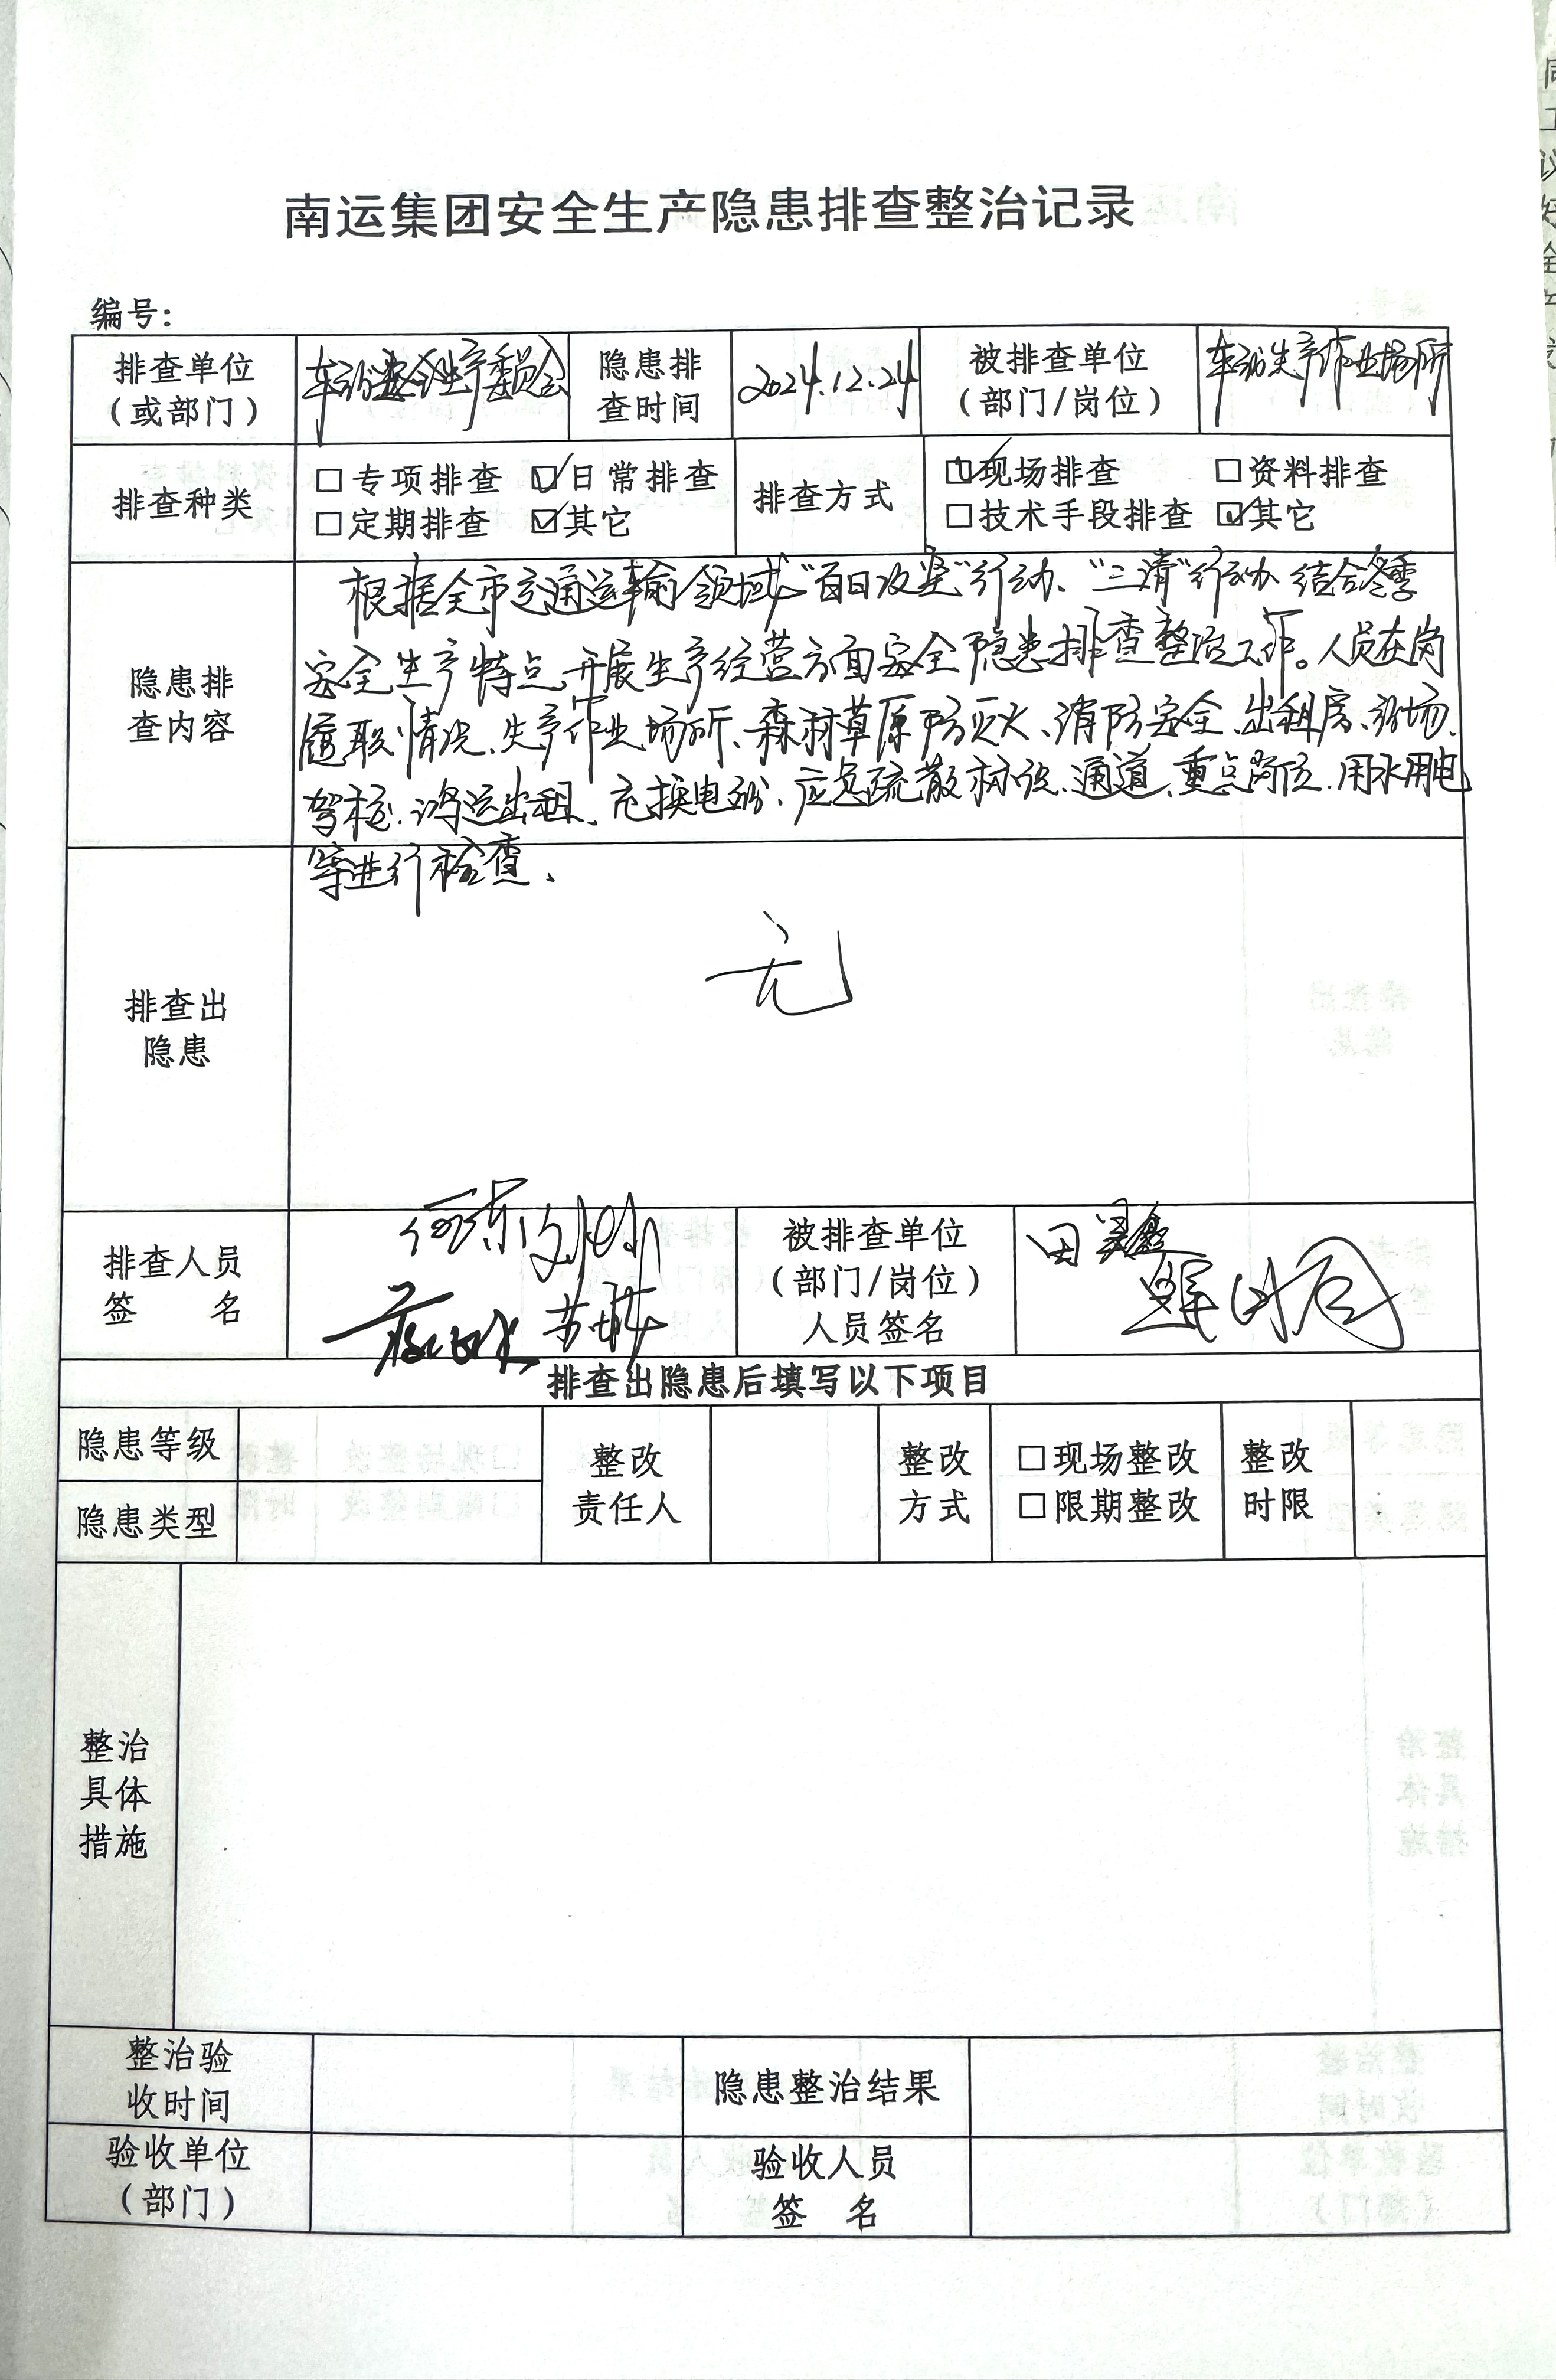 南运集团安全生产隐患排查整治记录
编号：
排查单位
（或部门）
车站安全生产委员会
隐患排
查时间
2024.12.24
被排查单位
（部门/岗位）
车站生产作业场所
排查种类
□专项排查 ☑日常排查
□定期排查 ☑其它
排查方式
☑现场排查 □资料排查
□技术手段排查 ☑其它
隐患排
查内容
根据全市交通运输领域“百日攻坚”行动、“三清”行动 结合冬季
安全生产特点,开展生产经营方面安全隐患排查整治工作。人员在岗
履职情况、生产作业场所、森林草原防灭火、消防安全、出租房、站场、
驾校、鸿运出租、充换电站、应急疏散标识、通道、重点岗位、用水用电
等进行检查、
排查出
隐患
无
排查人员
签 名
被排查单位
（部门/岗位）
人员签名
田
排查出隐患后填写以下项目
隐患等级
隐患类型
整改
责任人
整改
方式
□现场整改
□限期整改
整改
时限
整治
具体
措施
整治验
收时间
隐患整治结果
验收单位
（部门）
验收人员
签 名